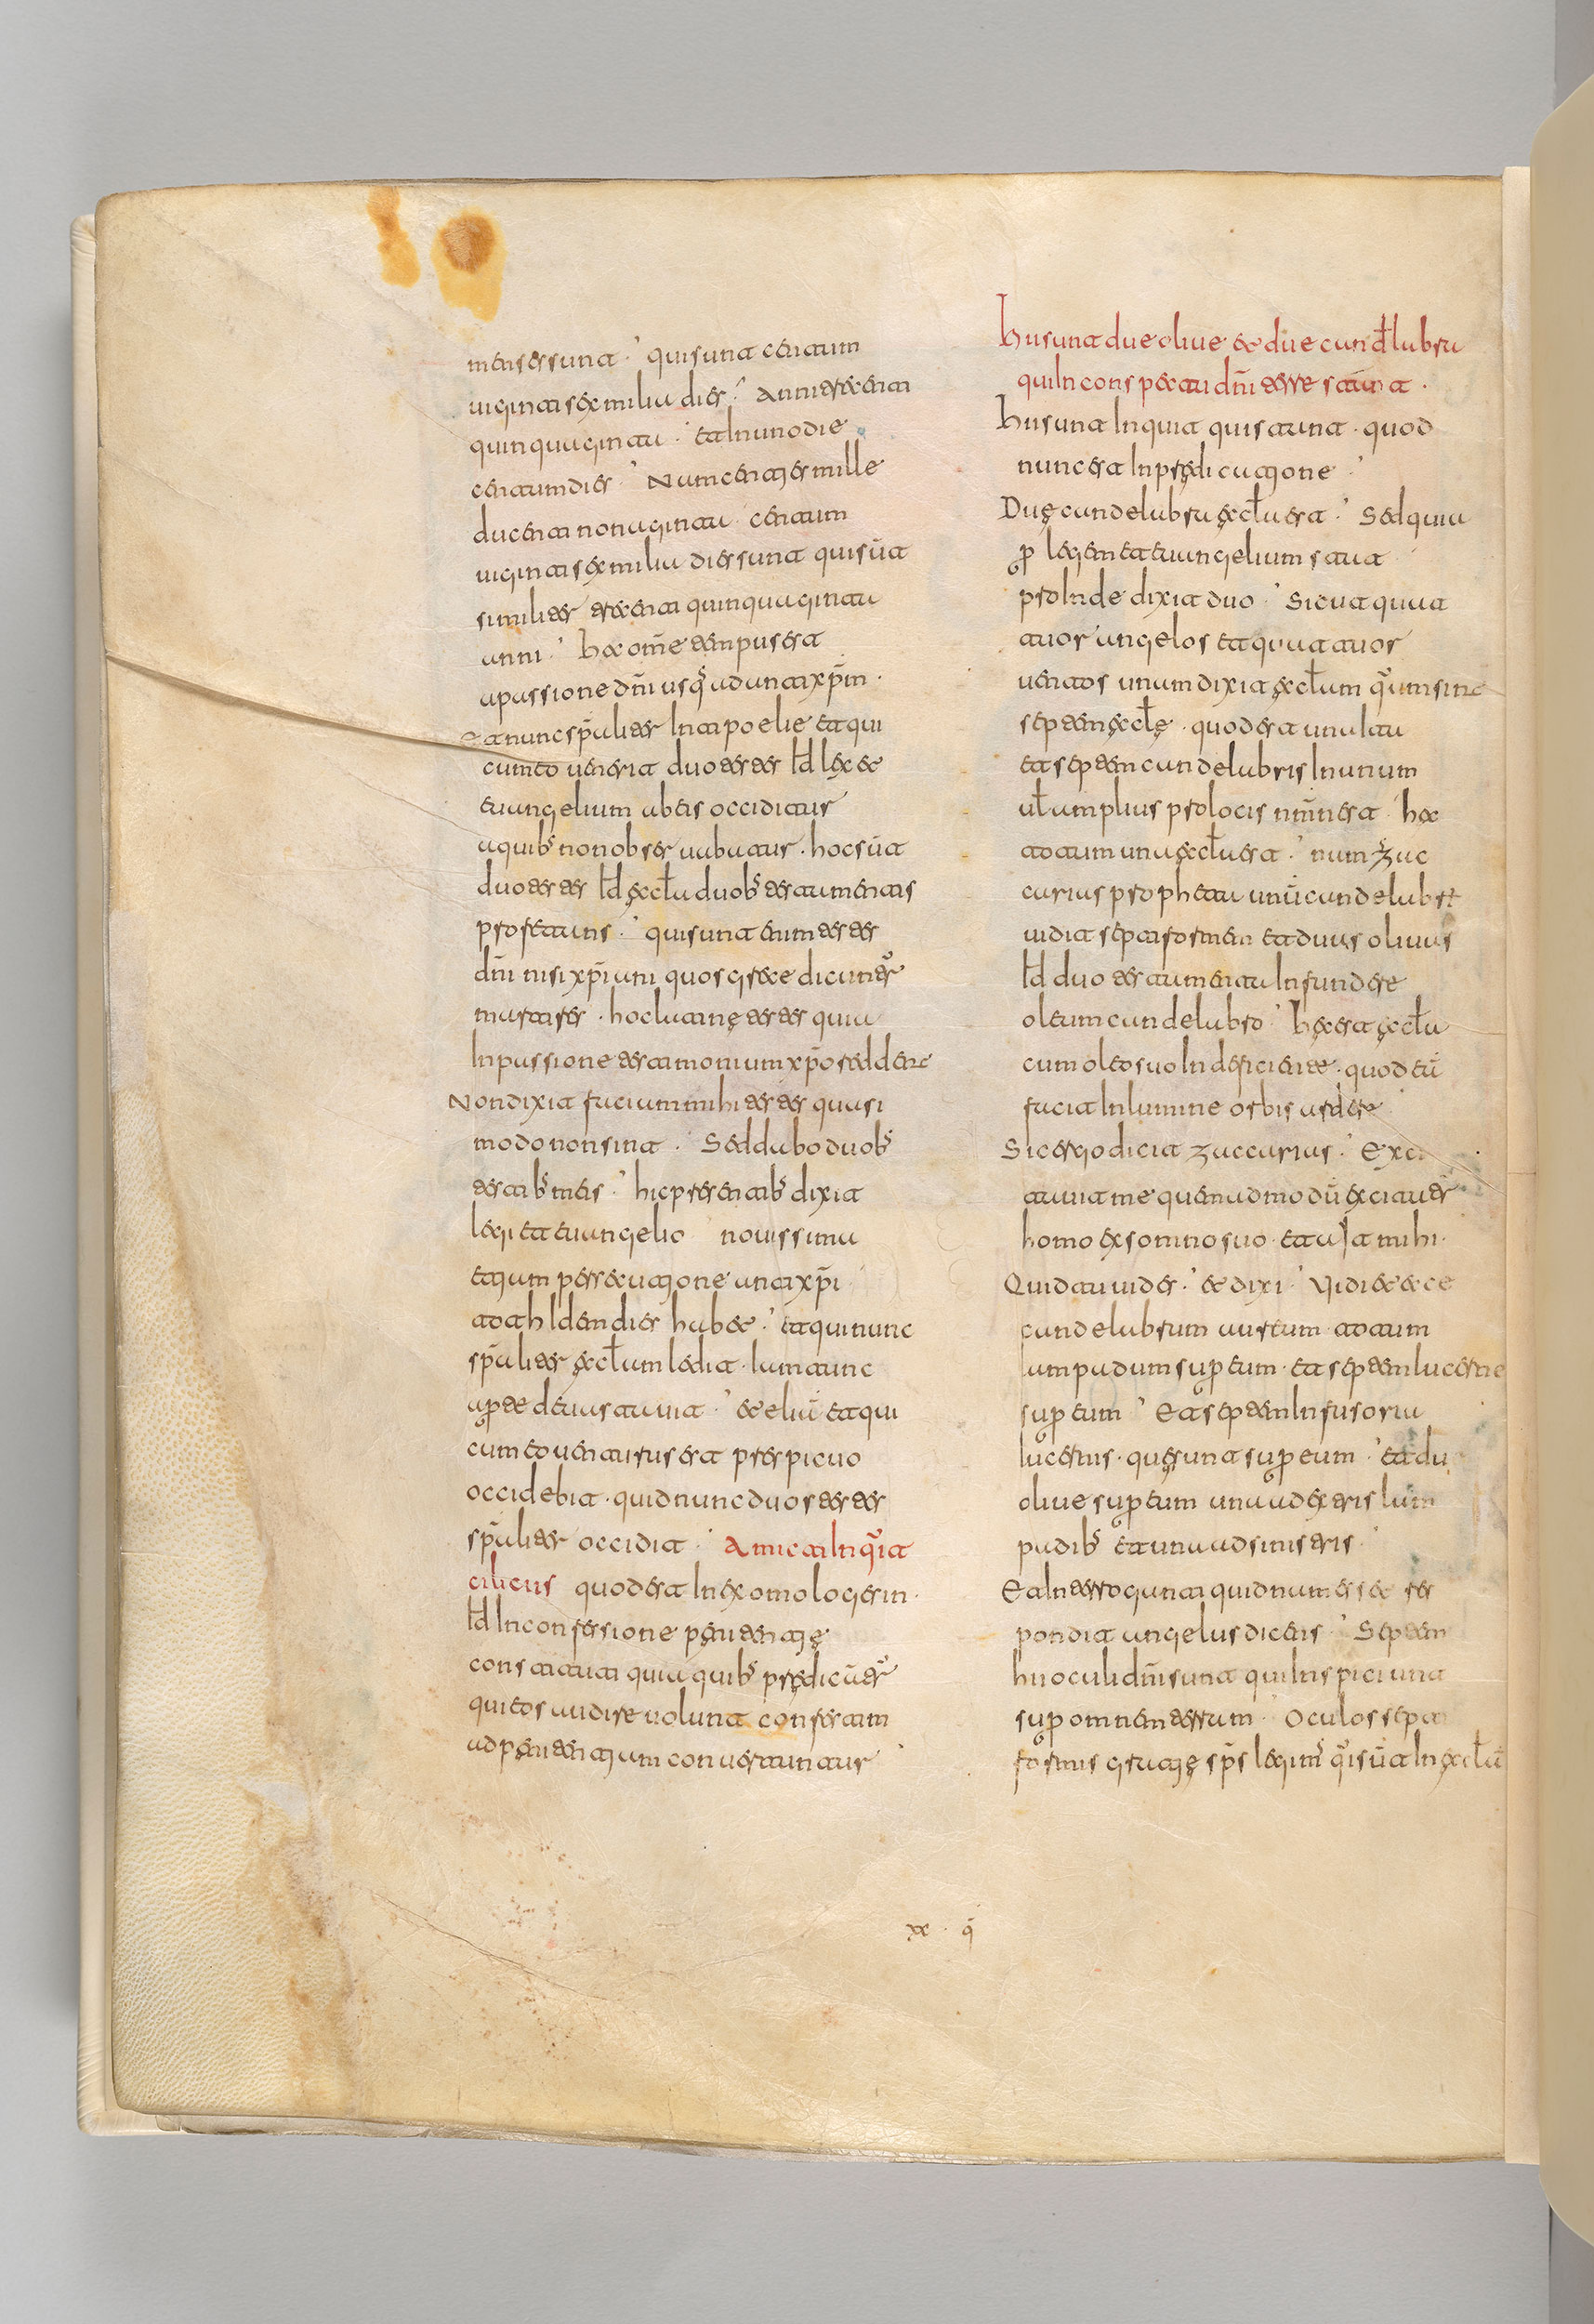 menses sunt · quia sunt centum
uiginti sex milia dies · Anni trecenti
quinquaginta · et in uno die
centum dies · Nam centies mille
ducenti nonaginta · centum
uiginti sex milia dies sunt qui sūt
similiter trecenti quinquaginta
anni · hoc om̄e tempus est
a passione dn̄i usq̄ ad antixp̄m ·
Et nunc sp̄aliter In tipo elie et qui
cum eo uenerit duo testes Id lex et
euangelium ab eis occiditur
a quib; non obseruabatur · hoc sūt
duo testes Id ęccl̄a duob; testamentis
profetans · qui sunt enim testes
dn̄i nisi xp̄iani quos grece dicunt̄
martires · hoc latine testes quia
In passione testimonium xp̄o reddent
Non dixit faciam mihi testes quasi
modo non sint · Sed dabo duob;
testib; meis · hic presentib; dixit
legi et euangelio nouissima
etiam persecutione antixp̄i
tot hIdem dies habet · et qui nunc
sp̄aliter ęccl̄am ledit · tam tunc
aperte deuastauit · et eliā et qui
cum eo uenturus est perspicuo
occidebit · quid nunc duos testes
sp̄aliter occidit · Amicti Inq̄it
ciliciis quod est In exomologesin ·
Id In confessione pęnitentię
constituti quia quib; prędicāt̄
qui eos audire nolunt conferam
ad pęnitentiam conuertuntur
hii sunt due oliue et due candelabra
qui In conspectu dn̄i terre stant ·
hii sunt Inquit qui stant · quod
nunc est In prędicatione ·
Duę candelabra ęccl̄a est · Sed quia
p̄ legem et euangelium stat
proInde dixit duo · Sicut quat
tuor angelos et quattuor
uentos unum dixit ęccl̄am q̄uis sint
septem ęccl̄ę · quod est una ita
et septem candelabris In unum
ul̄ amplius pro locis num̄ est · hoc
totum una ęccl̄a est · nam zac
carius propheta unū candelabrū
uidit septiformem et duas oliuas
Id duo testamenta Infundere
oleum candelabro · hęc est ęccl̄a
cum oleo suo Indeficiente · quod eū
facit In lumine orbis ardere
Sic ergo dicit zaccarias · Exci
tauit me quemadmodū excitat̄
homo ex somno suo · et ait mihi ·
Quid tu uides · et dixi · Uidi et ecce
candelabrum aureum totum
lampadam super eum · et septem lucerne
super eum · Et septem Infusoria
lucernis · quę sunt super eum · et du
oliue super eum una ad exteris lam
padib; et una ad sinisteris ·
Et Interrogaui quid nam esset res
pondit angelus dicens · Septem
hii oculi dn̄i sunt qui Inspiciunt
super omnem terram · Oculos septi
formis gratię sp̄s legim; q̄i sūt In ęccl̄a
xx · q̄